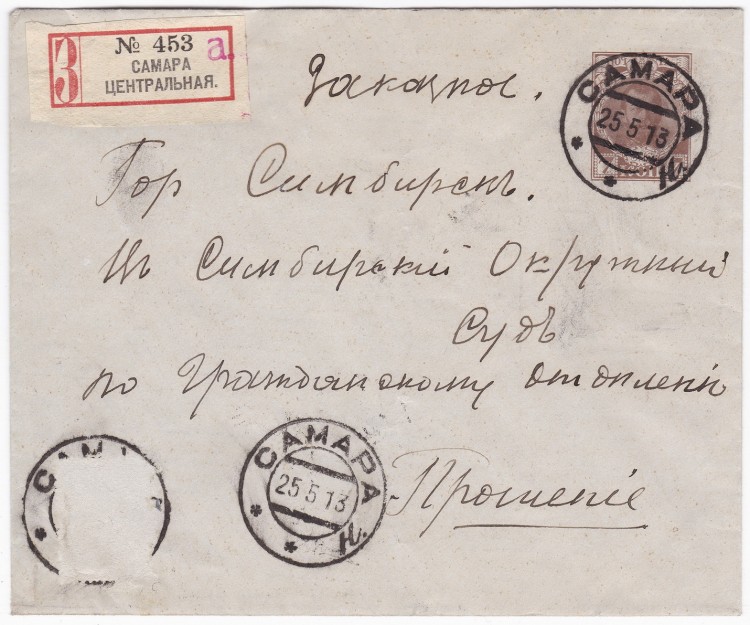 З № 453 а.
САМАРА
ЦЕНТРАЛЬНАЯ.
Заказное.
САМАРА
25 5 13
Гор Симбирскъ.
Въ Симбирскій Окружный
Судъ
по Гражданскому отдѣленію
Прошеніе
САМА
САМАРА
25 5 13